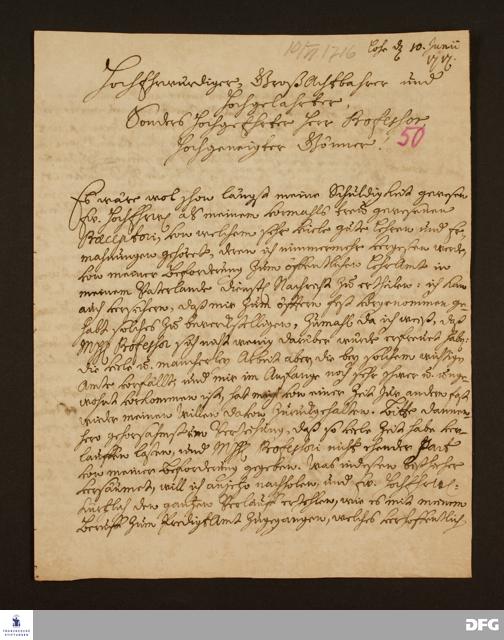 10/VI 1716
d. 10. Junii
HochEhrwürdiger, GroßAchtbahrer und
Hochgelahrter,
Sonders Hochgeehrter Herr Professor
Hochgeneigter Gönner!
50
Es wäre wol schon längst meine Schuldigkeit gewesen
Ew. HochEhrw. als meinem vormahls treu gewesenen
Præceptori, von welchem sehr viele gute Lehren und Er-
mahnungen gehöret, deren ich nimmermehr vergessen werde,
von meiner Beforderung zum öffentlichen LehrAmt in
meinem Vaterlande Nachricht zu ertheilen: ich kan
auch versichern, daß mir zum öfftern fest vorgenommen ge-
habt solches zu bewerckstelligen, zumahl da ich weiß, daß
Professor sich nicht wenig darüber würde erfreuet haben:
die viele u. mancherley Arbeit aber, die bey solchem wichtigen
Amte vorfällt, und mir im Anfange noch sehr schwer u. unge-
wohnt vorkommen ist, hat mich von einer Zeit zur andern fast
wieder meinen Willen davon zurückgehalten. Bitte dannen-
hero gehorsahmst um Verzeihung, daß so viele Zeit habe ver-
lauffen lasen, und Professori nicht ehender Part
von meiner Beforderung gegeben. Was indessen bißhero
versäumet, will ich anjetzo nachholen, und Ew. HochEhrw.
kürtzlich den gantzen Verlauff erzehlen, wie es mit meinem
Beruff zum PredigtAmt zugegangen, welches verhoffentlich
FRANCKESCHE STIFTUNGEN
DFG